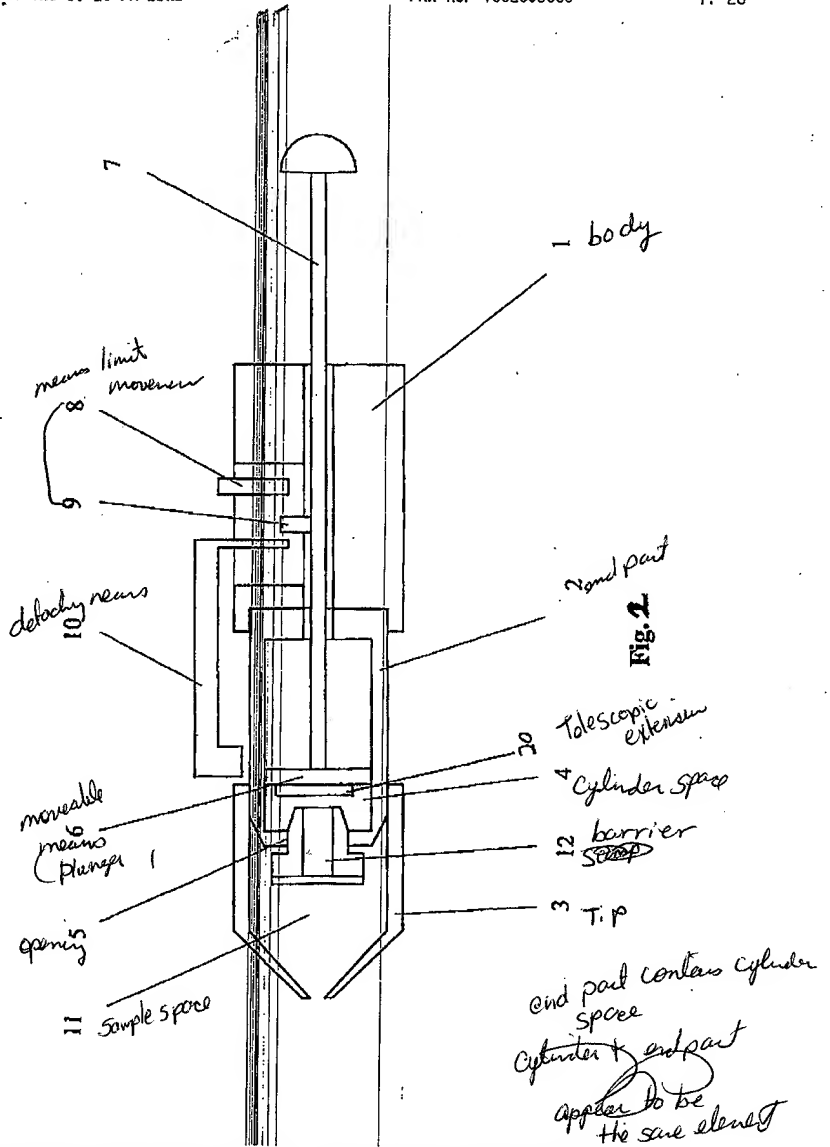 P. 20
7
1 body
means limit
8
9
2 end part
Fig. 2
10
20 Telescopic
extension
4 cylinder space
moveable
6
means
plunger
12 barrier
opening 5
3 Tip
11 sample space
end part contains cylinder
space
cylinder + end part
appear to be
the same element